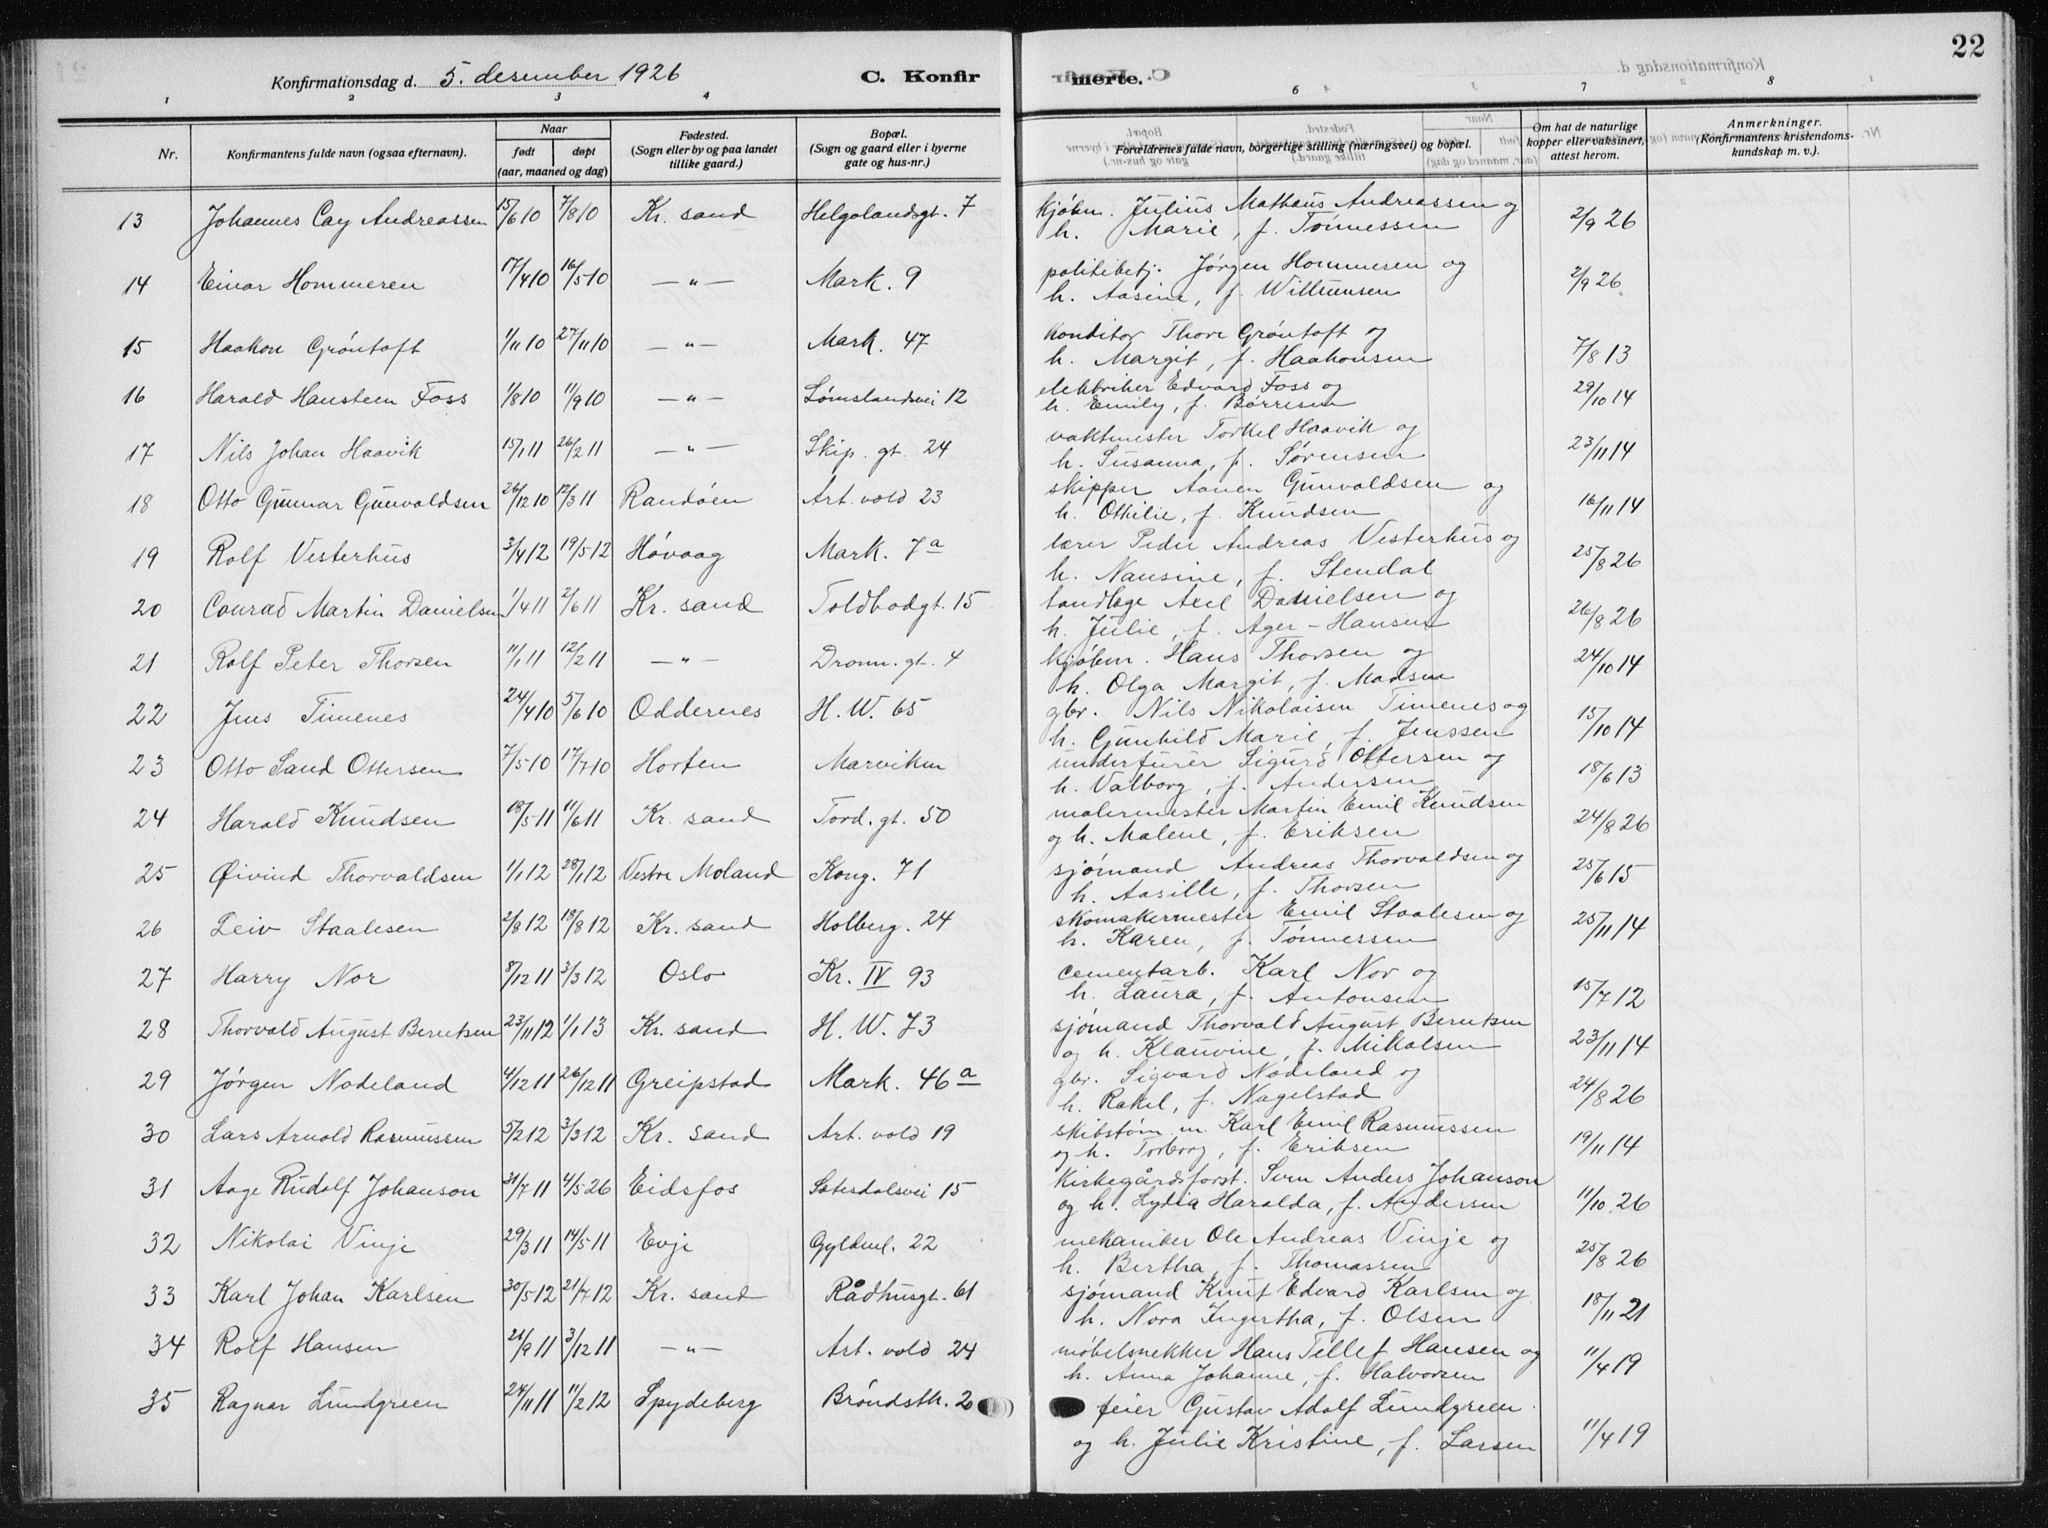 22
Konfirmationsdag d. 5. desember 1926 C. Konfirmerte.
1 2 3 4 6 7 8
Nr. Konfirmantens fulde navn (ogsaa efternavn). Naar født døpt (aar, maaned og dag) Fødested. (Sogn eller by og paa landet tillike gaard.) Bopæl. (Sogn og gaard eller i byerne gate og hus-nr.) Foreldrenes fulde navn, borgerlige stilling (næringsvei) og bopæl. Om hat de naturlige kopper eller vaksinert, attest herom. Anmerkninger. (Konfirmantens kristendomskundskap m. v.).
13 Johannes Cay Andreassen 15/6 10 7/8 10 Kr. sand Helgolandsgt. 7 kjøbm. Julius Mathæus Andreassen og 2/9 26
h. Marie, f. Tønnessen
14 Einar Hommeren 17/4 10 16/5 10 —"— Mark. 9 politibetj. Jørgen Hommeren og 2/9 26
h. Aasine, f. Willumsen
15 Haakon Grøntoft 1/11 10 27/11 10 —"— Mark. 47 konditor Thore Grøntoft og 7/8 13
h. Margit, f. Haakonsen
16 Harald Hansteen Foss 1/8 10 11/9 10 —"— Lømslandsvei 12 elektriker Edvard Foss og 29/10 14
h. Emily, f. Børresen
17 Nils Johan Haavik 15/1 11 26/2 11 —"— Skip. gt. 24 vaktmester Torkel Haavik og 23/11 14
h. Susanna, f. Sørensen
18 Otto Gunnar Gunvaldsen 26/12 10 12/3 11 Randøen Art. vold 23 skipper Aanen Gunvaldsen og 16/11 14
h. Othilie, f. Knudsen
19 Rolf Vesterhus 3/4 12 19/5 12 Høvaag Mark. 7a lærer Peder Andreas Vesterhus og 25/8 26
h. Nansine, f. Stendal
20 Conrad Martin Danielsen 1/4 11 2/6 11 Kr. sand Toldbodgt. 15 tandlæge Axel Danielsen og 26/8 26
h. Julie, f. Ager-Hansen
21 Rolf Peter Thorsen 11/1 11 12/2 11 —"— Dronn. gt. 4 kjøbm. Hans Thorsen og 24/10 14
h. Olga Margit, f. Madsen
22 Jens Timenes 24/4 10 5/6 10 Oddernes H. W. 65 gbr. Nils Nikolaisen Timenes og 15/10 14
h. Gunhild Marie, f. Jenssen
23 Otto Sand Ottersen 7/5 10 17/7 10 Horten Marviken underfurer Sigurd Ottersen og 18/6 13
h. Valborg, f. Andersen
24 Harald Knudsen 18/5 11 11/6 11 Kr. sand Tord. gt. 50 malermester Martin Emil Knudsen 24/8 26
og h. Malene, f. Eriksen
25 Øivind Thorvaldsen 1/1 12 28/1 12 Vestre Moland Kong. 71 sjømand Andreas Thorvaldsen og 25/6 15
h. Aasille, f. Thorsen
26 Leiv Staalesen 2/8 12 18/8 12 Kr. sand Holberg. 24 skomakermester Emil Staalesen og 25/11 14
h. Karen, f. Tønnessen
27 Harry Nor 8/12 11 3/3 12 Oslo Kr. IV 93 cementarb. Karl Nor og 15/7 12
h. Laura, f. Antonsen
28 Thorvald August Berntsen 23/11 12 1/1 13 Kr. sand H. W. 73 sjømand Thorvald August Berntsen 23/11 14
og h. Klauvine, f. Mikalsen
29 Jørgen Nodeland 4/12 11 26/12 11 Greipstad Mark. 46a gbr. Sigvard Nodeland og 24/8 26
h. Rakel, f. Nagelstad
30 Lars Arnold Rasmussen 5/2 12 3/3 12 Kr. sand Art. vold 19 skibstøm. m. Karl Emil Rasmussen 19/11 14
og h. Torborg, f. Eriksen
31 Aage Rudolf Johanson 31/7 11 4/5 26 Eidsfos Setesdalsvei 15 kirkegårdsforst. Sven Anders Johanson 11/10 26
og h. Lydia Haralda, f. Andersen
32 Nikolai Vinje 29/3 11 14/5 11 Evje Gyldenl. 22 mekaniker Ole Andreas Vinje og 25/8 26
h. Bertha, f. Thomassen
33 Karl Johan Karlsen 30/5 12 21/7 12 Kr. sand Rådhusgt. 61 sjømand Knut Edvard Karlsen og 18/11 21
h. Nora Ingertha, f. Olsen
34 Rolf Hansen 21/9 11 3/12 11 —"— Art. vold 24 møbelsnekker Hans Tellef Hansen og 11/4 19
h. Anna Johanne, f. Halvorsen
35 Ragnar Lundgreen 24/11 11 11/2 12 Spydeberg Brøndsth. 2 feier Gustav Adolf Lundgreen 11/4 19
og h. Julie Kristine, f. Larsen